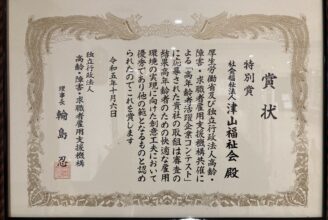 賞状
特別賞
社会福祉法人 津山福祉会 殿
厚生労働省及び独立行政法人高齢・
障害・求職者雇用支援機構共催に
よる「高年齢者活躍企業コンテスト」
に応募された貴社の取組は審査の
結果高年齢者のための快適な雇用
環境の実現に向けた創意工夫において
優秀であり他の範となるものと認め
られたのでこれを賞します
令和五年十月六日
独立行政法人
高齢・障害・求職者雇用支援機構
理事長 輪島 忍